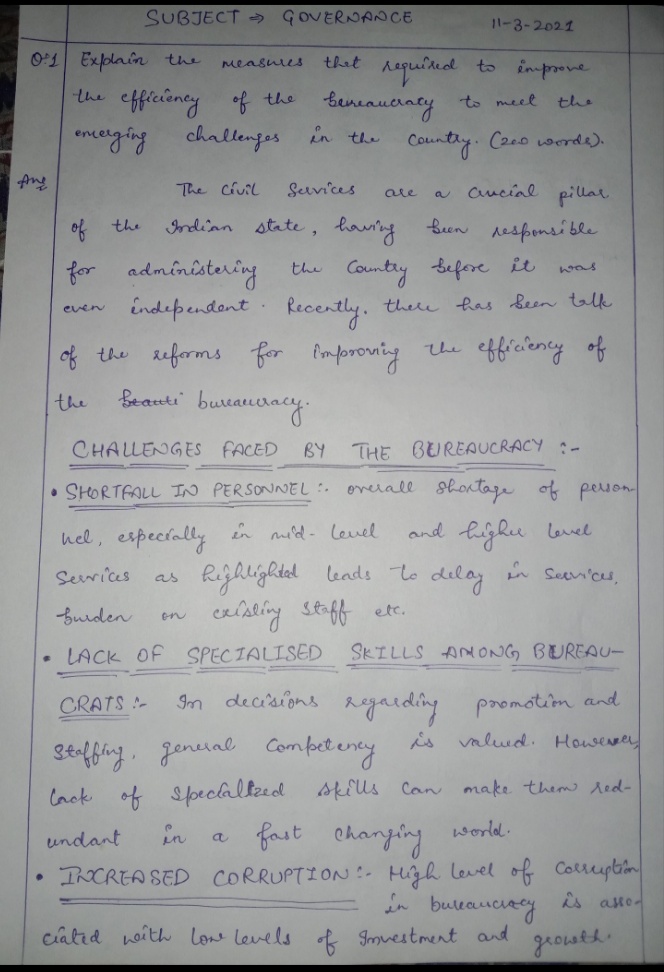 SUBJECT ⇒ GOVERNANCE 11-3-2021
Q:1 Explain the measures that required to improve
the efficiency of the bureaucracy to meet the
emerging challenges in the country. (200 words).
Ans The Civil Services are a crucial pillar
of the Indian state, having been responsible
for administering the Country before it was
even independent. Recently, there has been talk
of the reforms for improving the efficiency of
the beauti bureaucracy.
CHALLENGES FACED BY THE BUREAUCRACY :-
• SHORTFALL IN PERSONNEL :- overall shortage of person-
nel, especially in mid-level and higher level
Services as highlighted leads to delay in services,
burden on existing staff etc.
• LACK OF SPECIALISED SKILLS AMONG BUREAU-
CRATS :- In decisions regarding promotion and
staffing, general competency is valued. However,
lack of specialized skills can make them red-
undant in a fast changing world.
• INCREASED CORRUPTION :- High level of corruption
in bureaucracy is asso-
ciated with low levels of Investment and growth.